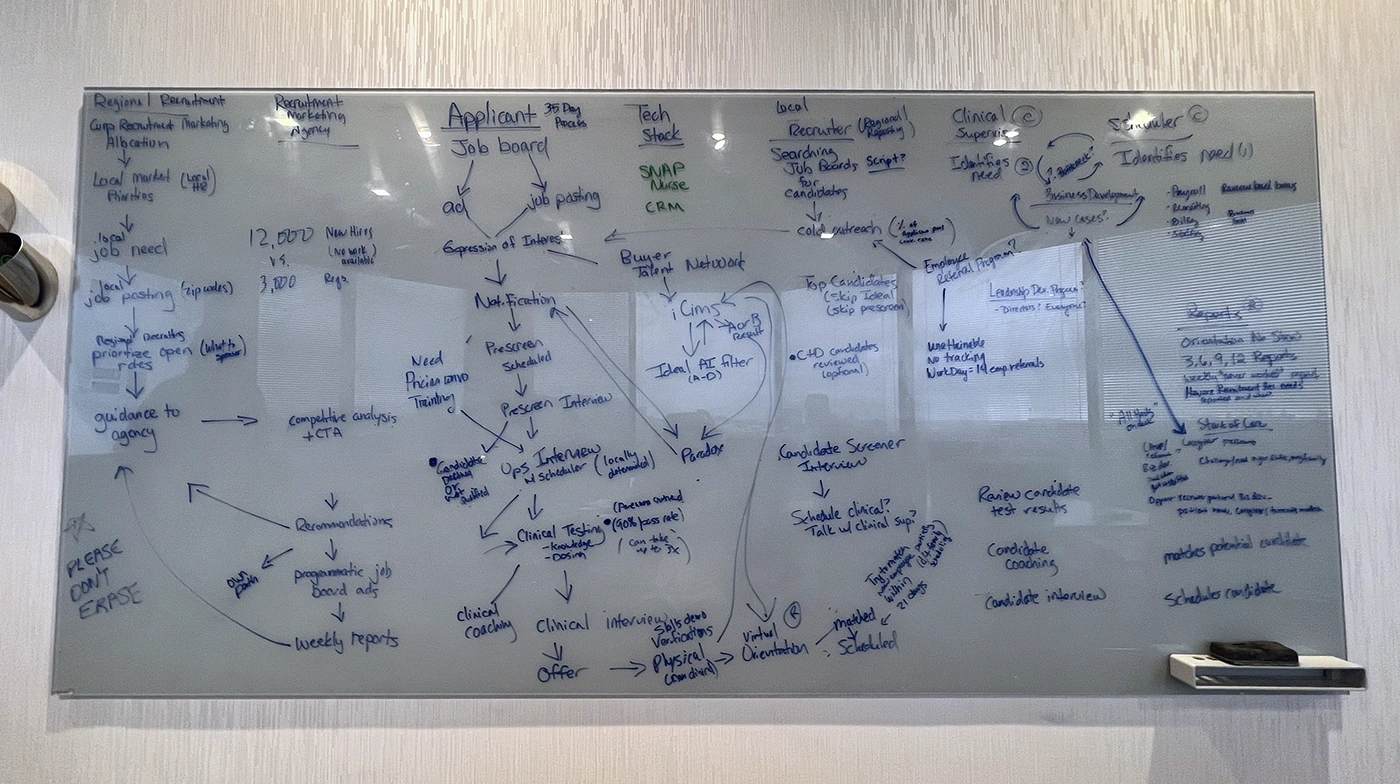 Regional Recruitment
Corp Recruitment Marketing
Allocation
Local Market
Priorities
(Local HR)
local
job need
local
job posting (zip codes)
Regional Recruiters
prioritize open
roles
(What to sponsor)
guidance to
agency
PLEASE
DON'T
ERASE
Recruitment
Marketing
Agency
12,000 New Hires
vs. (No work available)
3,000 Reqs
competitive analysis
+ CTA
Recommendations
own path
programmatic job
board ads
Weekly reports
Applicant
35 Day
Process
Job board
ad
job posting
Expression of Interest
Notification
Prescreen
Scheduled
Prescreen Interview
Need
Training
Candidate
OR
Not
Qualified
Ops Interview
w/ scheduler (locally
determined)
Clinical Testing
- Knowledge
- Dosing
(90% pass rate)
(can take
up to 3x)
Clinical
Coaching
Clinical interview
Offer
Skills demo
Verifications
Physical
Virtual
Orientation
R
matched
Scheduled
within
21 days
Tech
Stack
SNAP
Nurse
CRM
Buyer
Talent Network
iCims
A or B
Result
Ideal AI filter
(A-D)
Paradox
Local
Recruiter (Regional
Reporting)
Searching
Job Boards
for
candidates
Script?
cold outreach
Top Candidates
(skip Ideal)
(skip prescreen)
C+D candidates
reviewed
(optional)
Candidate Screener
Interview
Schedule clinical?
Talk w/ clinical sup?
Employee
Referral Program?
unattainable
No tracking
WorkDay = 14 emp. referrals
Clinical C
Supervisor
Identifies 2
need
Business Development
New Cases?
Leadership Dev. Program?
- Directors? Everyone?
Review candidate
test results
Candidate
coaching
Candidate interview
Scheduler C
Identifies need (1)
- Payroll
- Recruiting
- Billing
- Staffing
Reports
Orientation No Show
3, 6, 9, 12 Reports
"All Hands
on deck"
Start of Care
matches potential candidate
Schedules candidate